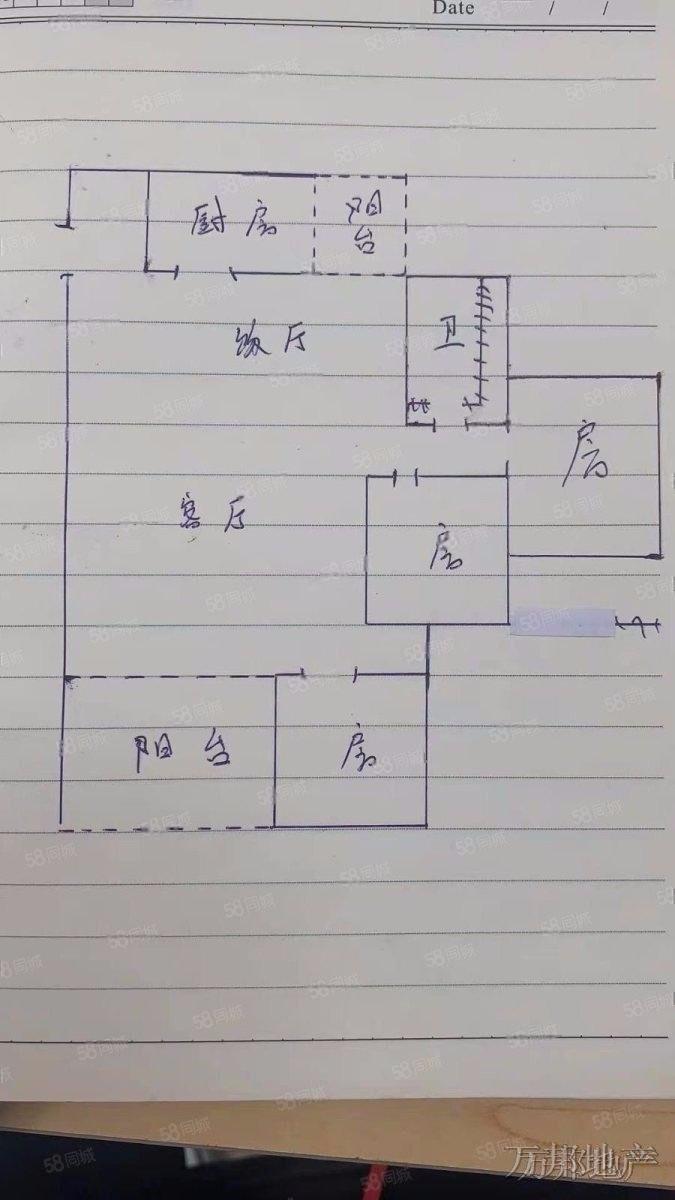 Date / /
厨房
阳
台
饭厅
卫
房
客厅
房
阳台
房
58同城
万邦地产